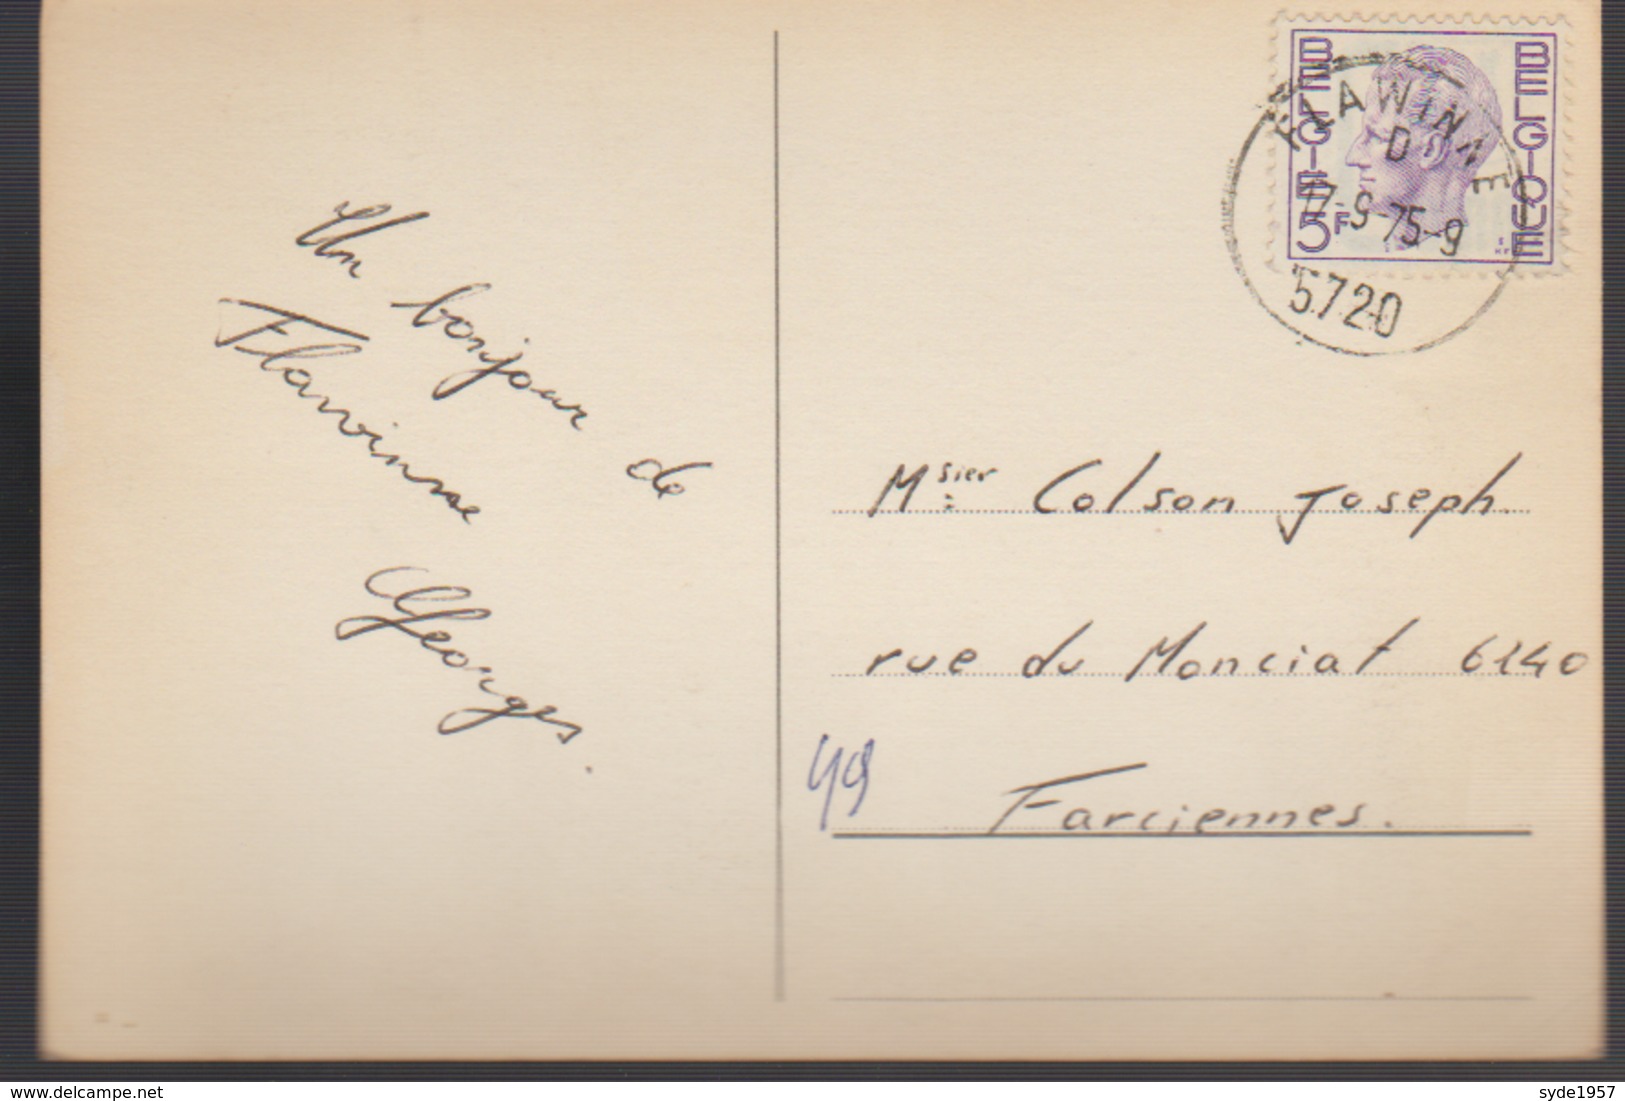 Un bonjour de
Flawinne
Georges.
BELGIE
BELGIQUE
5F
FLAWINNE
D
17-9-75-9
5720
Msier Colson Joseph.
rue du Monciat 6240
49
Farciennes.
www.delcampe.net
syde1957